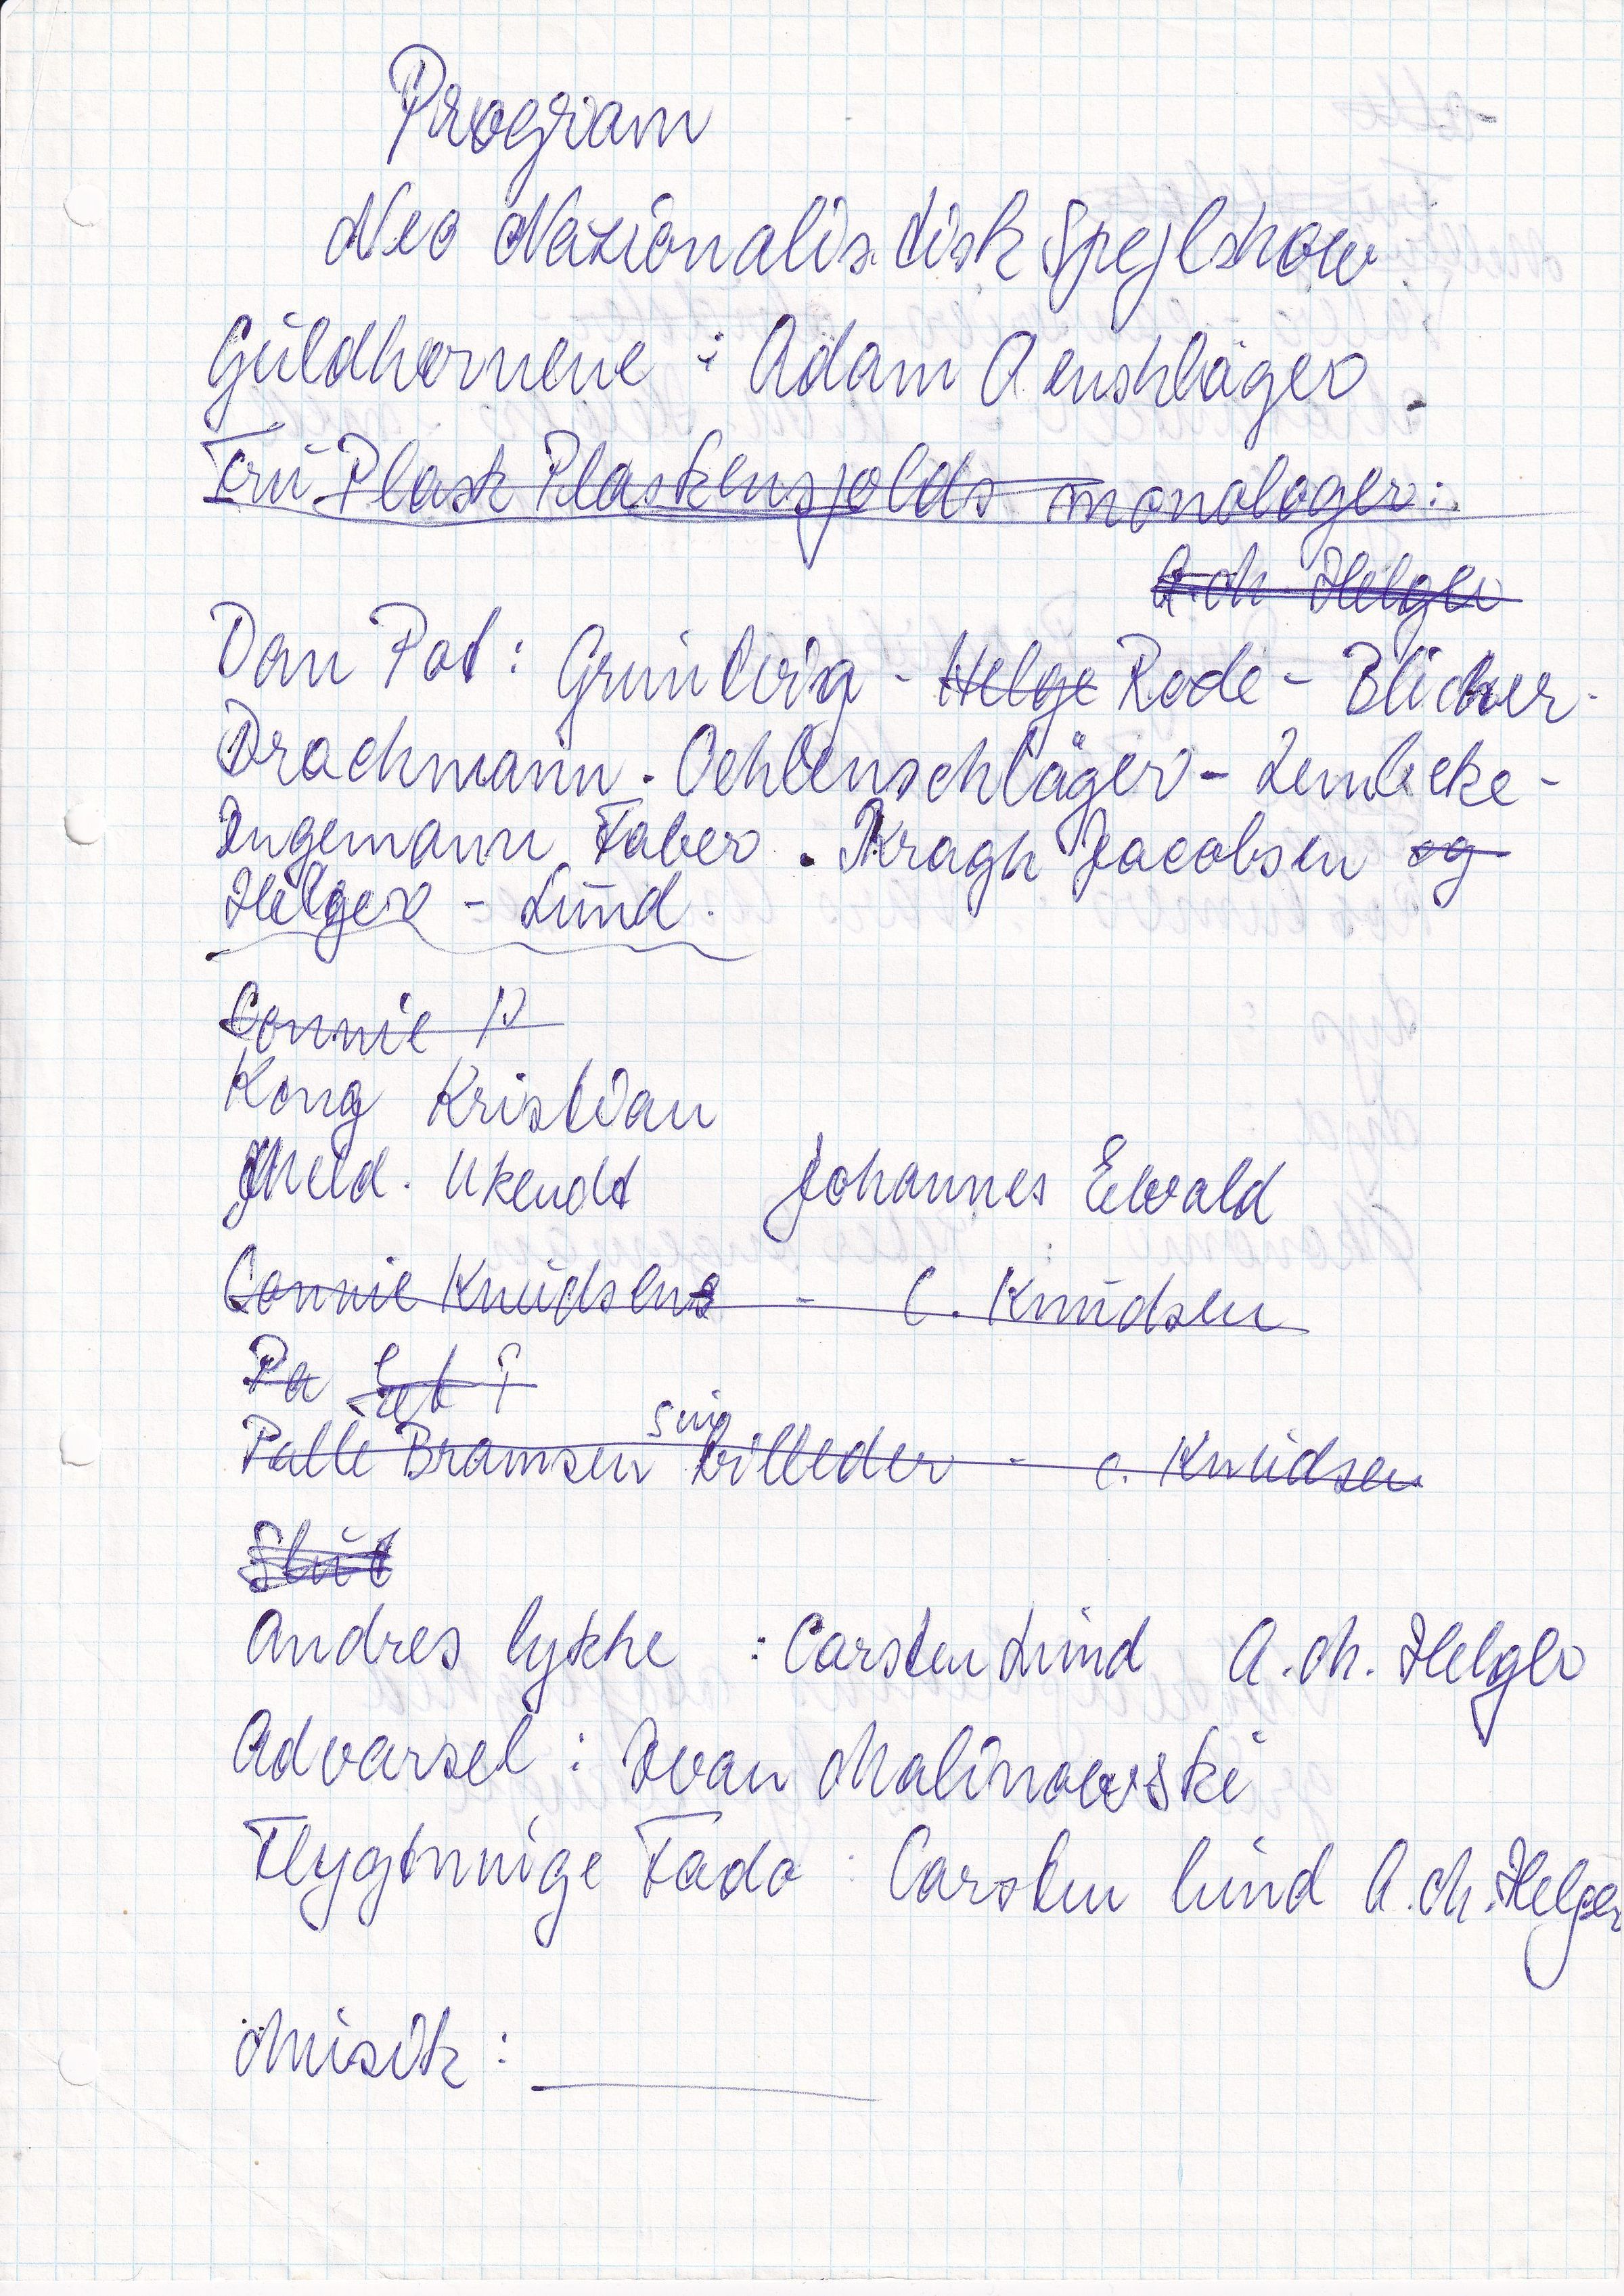 Program
Neo Nazionalistisk Spejlshow
Guldhornene : Adam Oenshläger
Fru Plask Plaskensjolds monologer :
A. Ch. Helger
Dan Pot : Gruntvig - Helge Rode - Blicher -
Drachmann - Oehlenschläger - Lembcke -
Ingemann Faber . Kragh Jacobsen og
Helger - Lund .
Connie P
Kong Kristian
Meld. Ukendt Johannes Ewald
Connie Knudsens - C. Knudsen
Pa
sin
Palle Bramsen billeder - C. Knudsen
Slut
Andres lykke : Carsten Lund A. Ch. Helger
Advarsel : Ivan Malinowski
Flygtninge Fado : Carsten lund A. Ch. Helger
Musik :